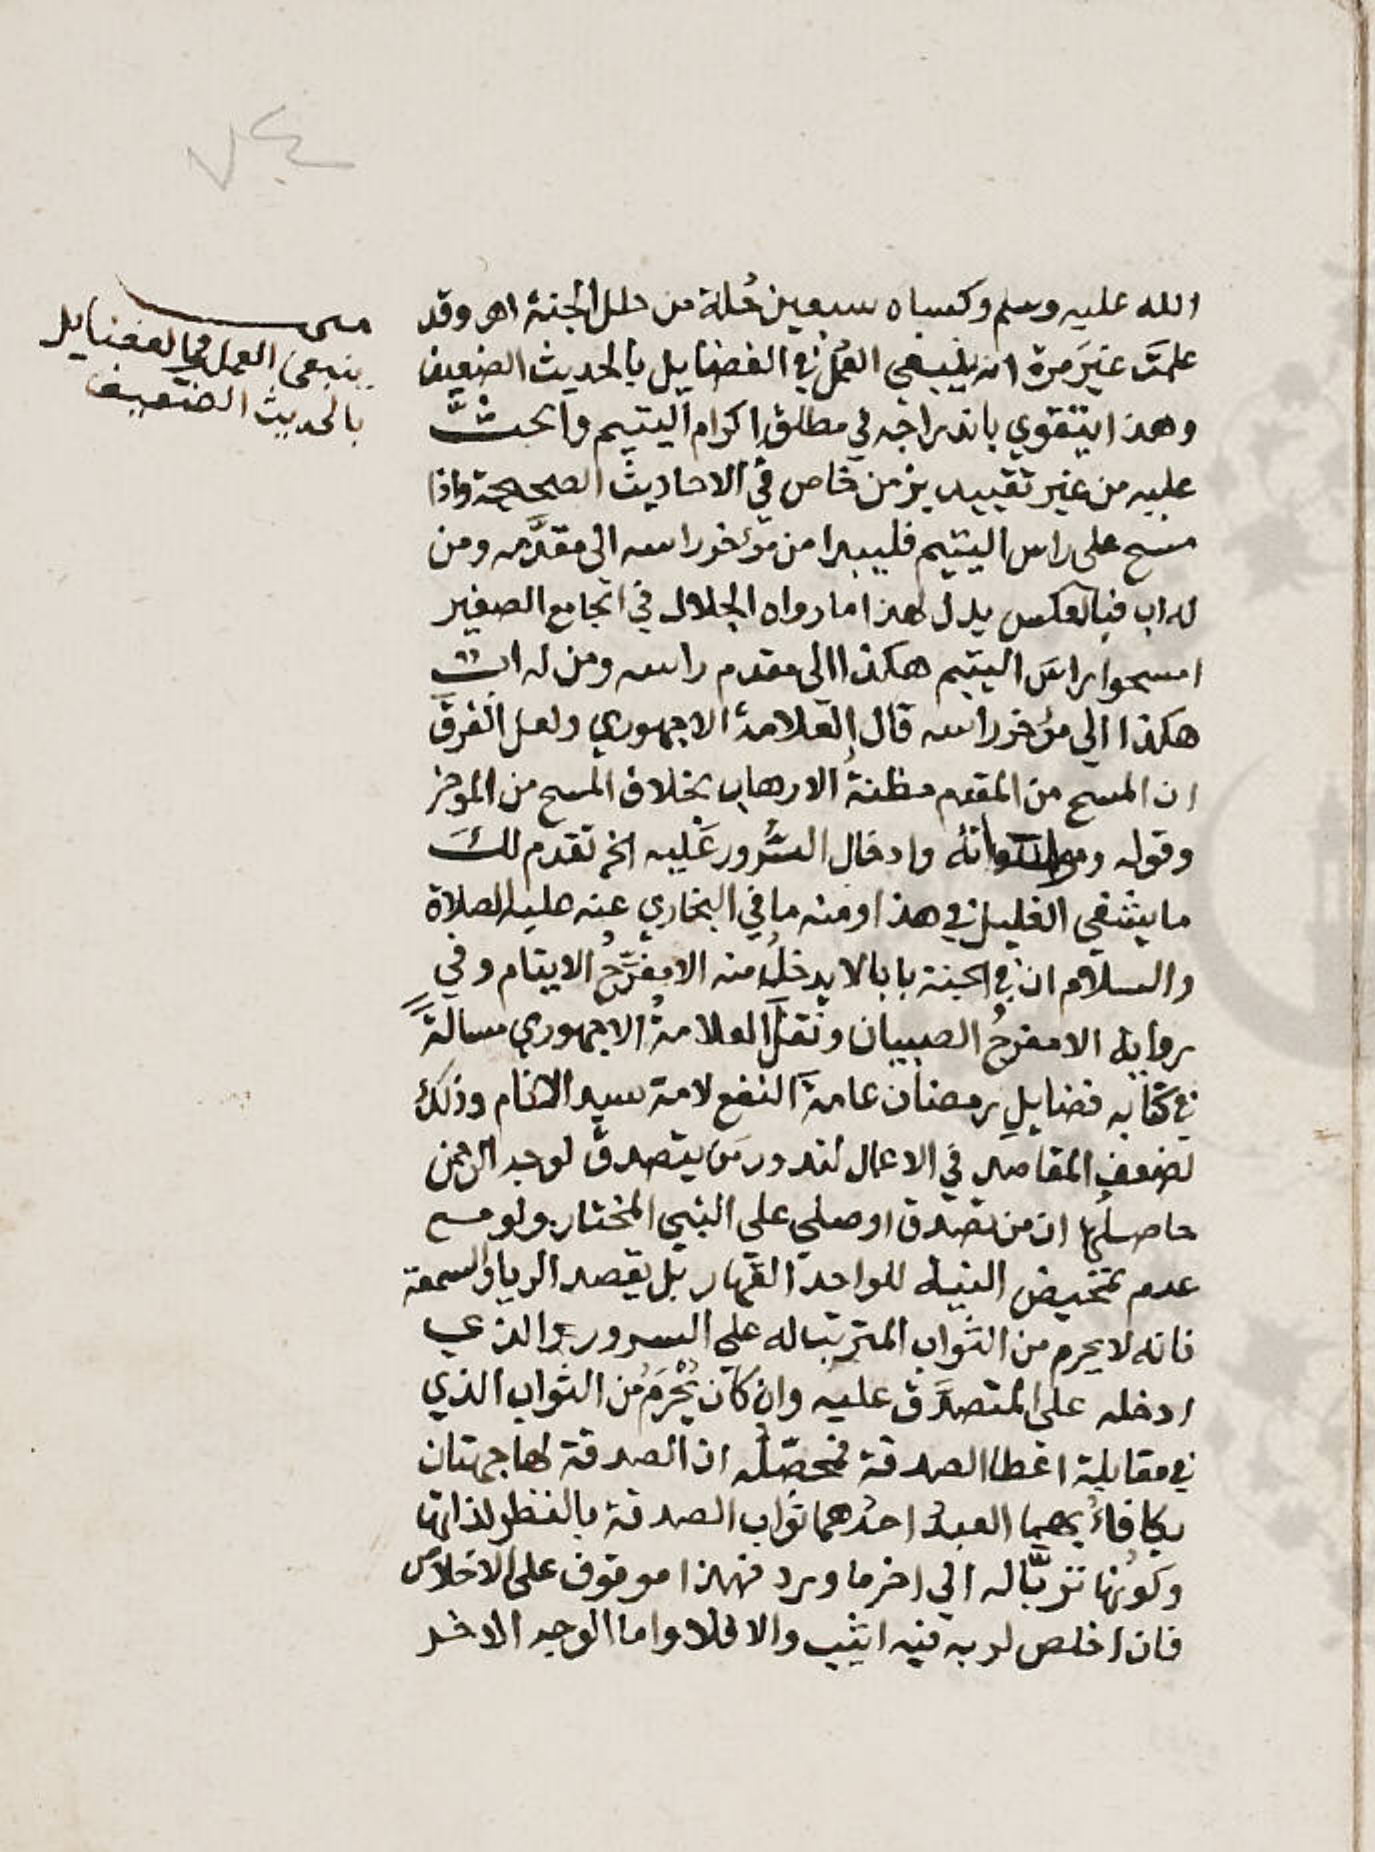 الله عليه وسلم وكساه سبعين حُلة من حلل الجنة اهـ وقد
علمتَ غيرَ مرة انه ينبغي العمل في الفضايل بالحديث الضعيف
وهذا يتقوي باندراجه في مطلق اكرام اليتيم والحثَّ
عليه من غير تقييد بزمن خاص في الاحاديث الصحيحة واذا
مسح على راس اليتيم فليبدا من مؤخر راسه الى مقدَّمه ومن
له اب فبالعكس يدل لهذا ما رواه الجلال في الجامع الصغير
امسحوا براسَ اليتيم هكذا الى مقدم راسه ومن له اب
هكذا الي مؤخر راسه قال العلامة الاجهوري ولعل الفرق
ان المسح من المقدم مظنةُ الارهاب بخلاف المسح من الموخر
وقوله وادخال السُّرور عَليه الخ تقدم لك
ما يشفي الغليل في هذا ومنه ما في البخاري عنه عليه الصلاة
والسلام ان في الجنة بابا لا يدخلُ منه الا مفرِّحُ الايتام وفي
رواية الا مفرحُ الصبيان ونقلَ العلامةُ الاجهوري مسالةً
في كتابه فضايلِ رمضان عامةَ النفع لامة سيد الانام وذلك
لضعفِ المقاصد في الاعمال لندور من يتصدق لوجه الرحمن
حاصلُها ان من تصدق او صلى على النبي المختار ولو مع
عدم تمحيض النية للواحد القهار بل بقصد الريا والسمعة
فانه لا يحرم من الثواب المترتب له على السرور الذي
ادخله على المتصدَّق عليه وان كان يُحْرَمُ من الثواب الذي
في مقابلة اعطا الصدقة فمحصّلُه ان الصدقة لها جهتان
يكافاءُ بهما العبدُ احدُهما ثواب الصدقة بالنظر لذاتها
وكونُها تربَّا له الي اخر ما ورد فهذا موقوف على الاخلاص
فان اخلص لربه فيه اثيب والا فلا واما الوجه الاخر
ينبغي العمل في الفضايل
بالحديث الضعيف